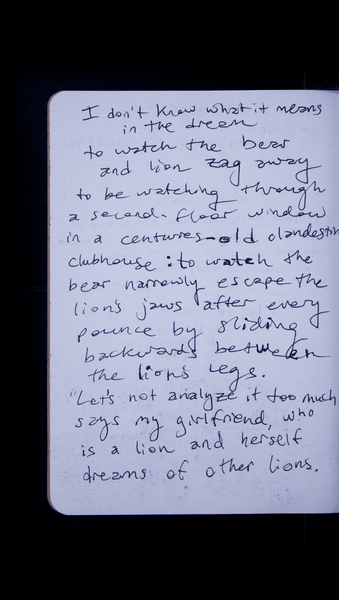 I don't know what it means
in the dream
to watch the bear
and lion zag away
to be watching through
a second-floor window
in a centuries-old clandestin
clubhouse : to watch the
bear narrowly escape the
lion's jaws after every
pounce by sliding
backwards between
the lion's legs.
"Let's not analyze it too much
says my girlfriend, who
is a lion and herself
dreams of other lions.